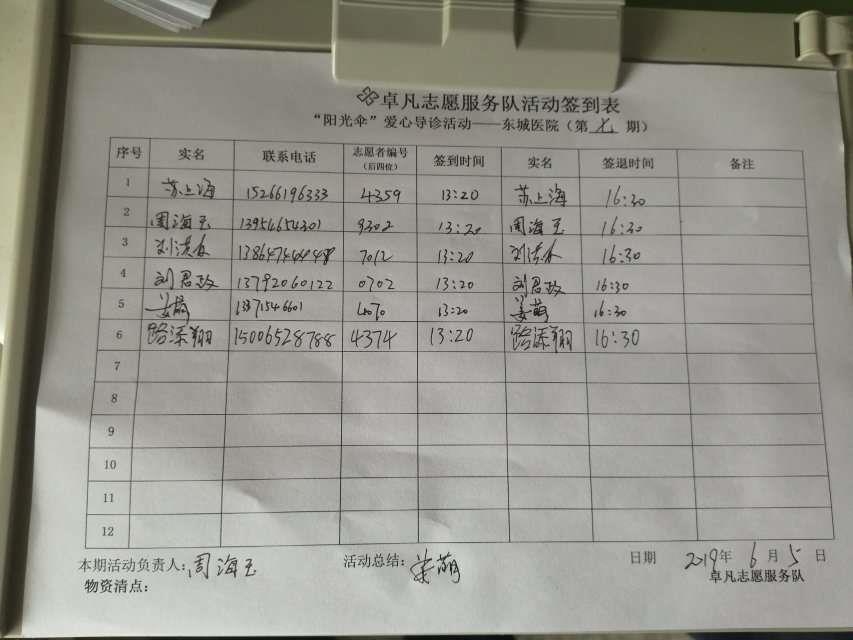 卓凡志愿服务队活动签到表
“阳光伞”爱心导诊活动——东城医院（第 七 期）
序号 实名 联系电话 志愿者编号（后四位） 签到时间 实名 签退时间 备注
1 苏上海 15266196333 4359 13:20 苏上海 16:30
2 周海玉 13954654301 9302 13:20 周海玉 16:30
3 7012 13:20 16:30
4 刘君政 13792060122 0702 13:20 刘君政 16:30
5 姜萌 4070 13:20 姜萌 16:30
6 路添翔 15006528788 4374 13:20 路添翔 16:30
7
8
9
10
11
12
本期活动负责人：周海玉 活动总结：姜萌 日期 2019年 6 月 5 日
物资清点： 卓凡志愿服务队